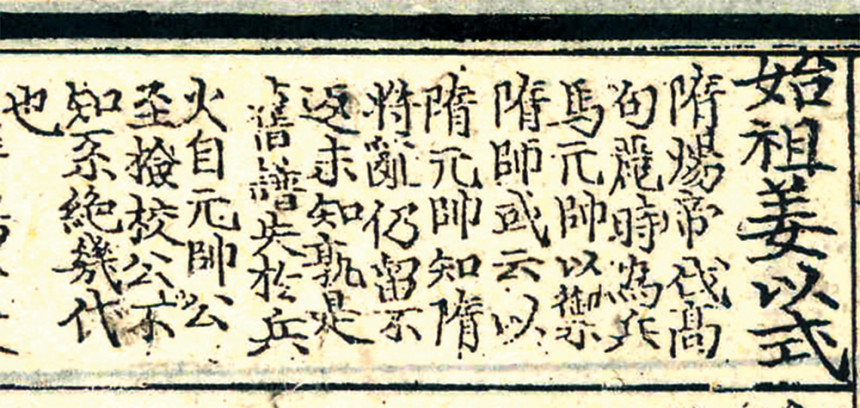 始祖姜以式
隋煬帝伐高
句麗時爲兵
馬元帥以禦
隋師或云以
隋元帥知隋
將亂仍留不
返未知孰是
舊譜失於兵
火自元帥公
至撿校公不
知系絶幾代
也